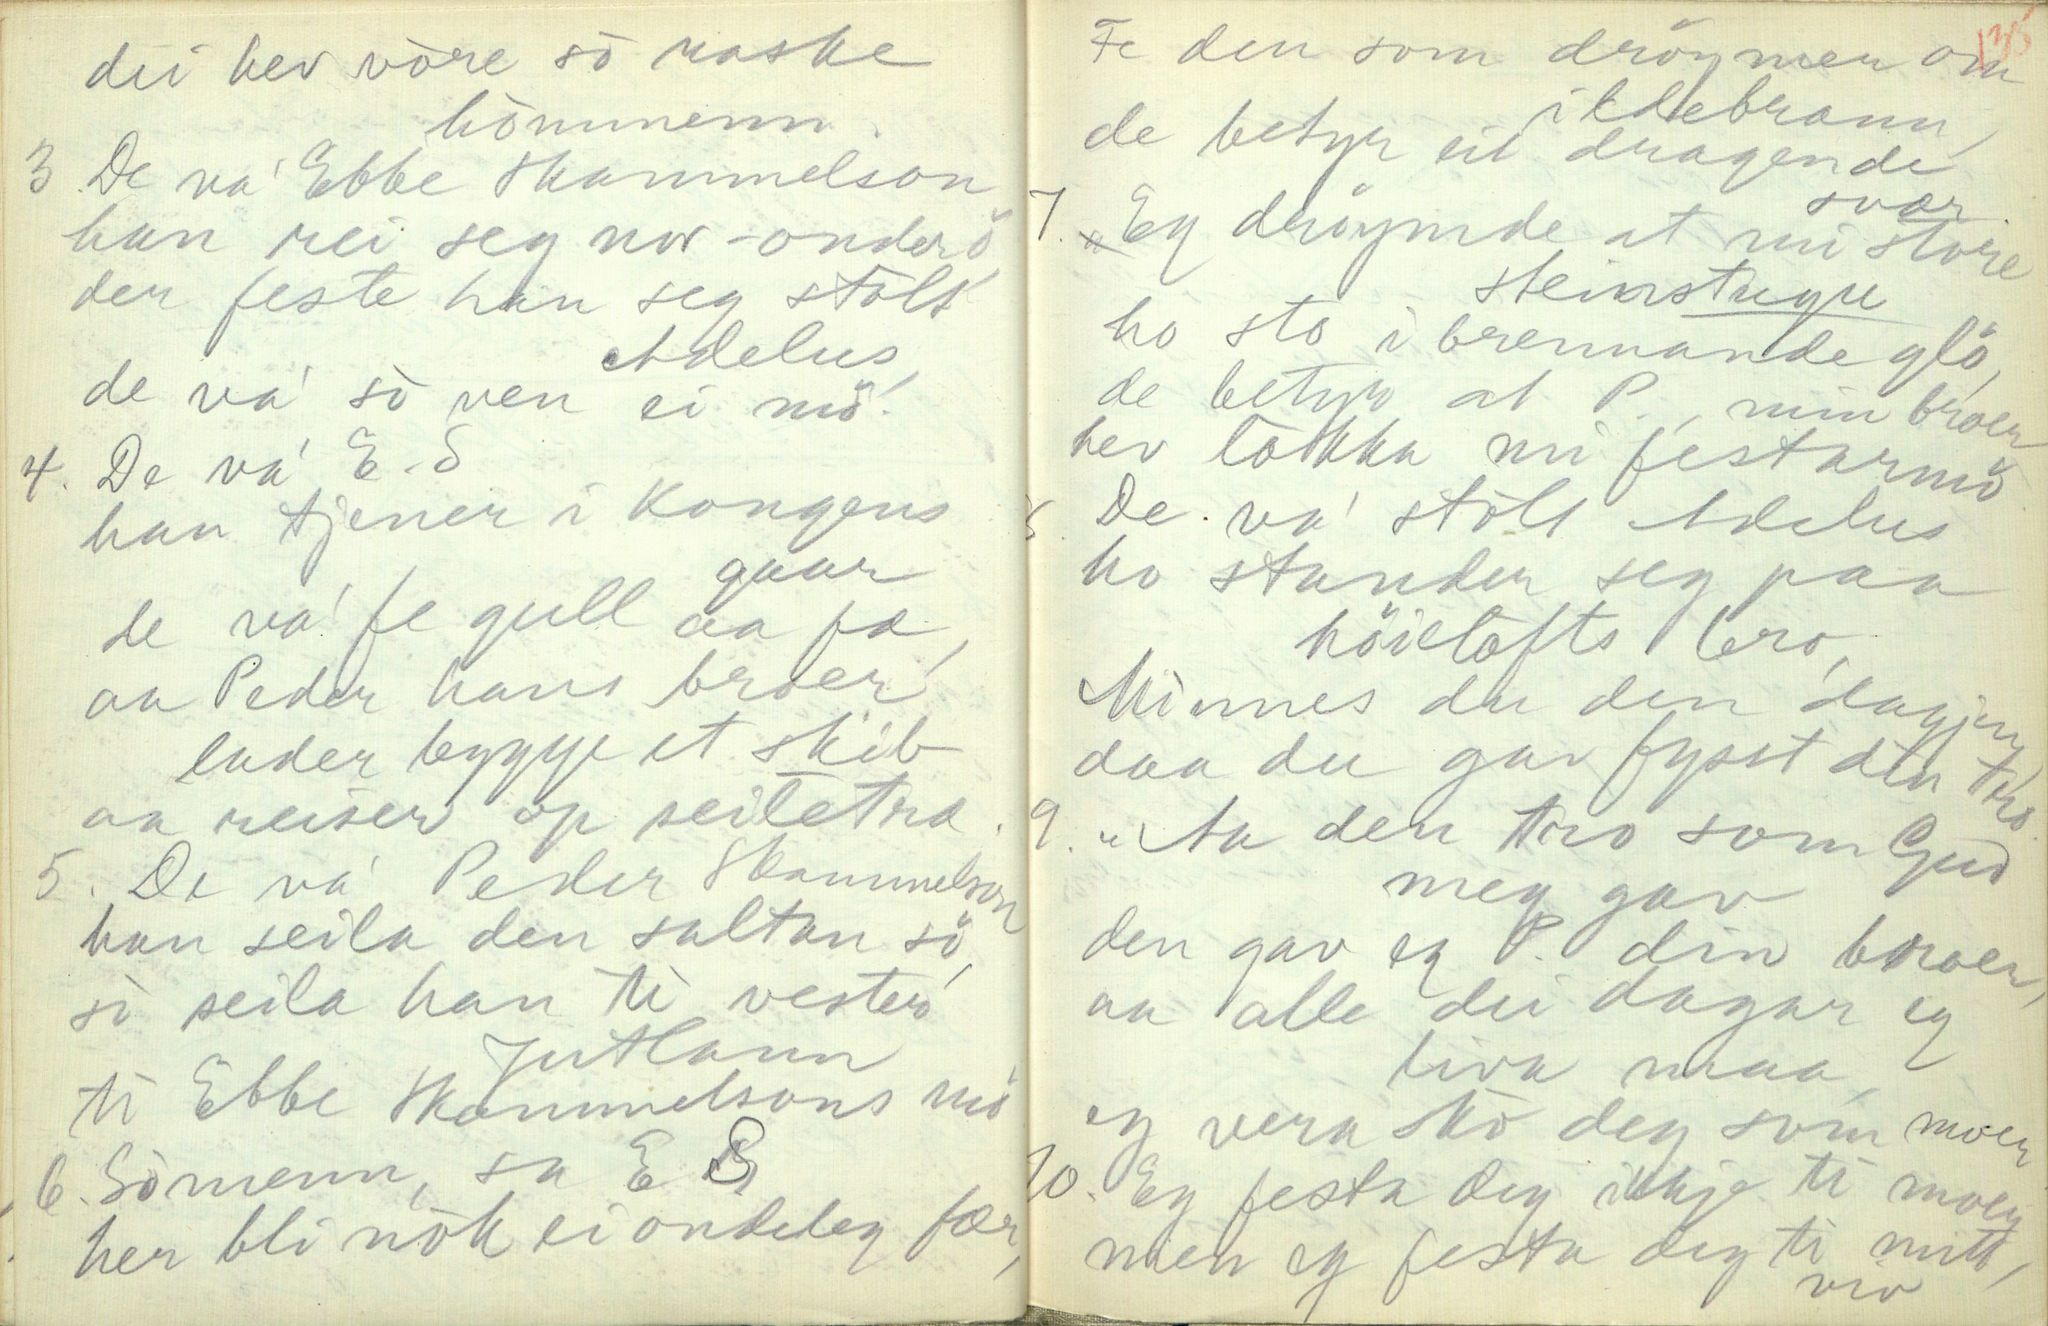 dei hev vòre sò raske
hòmmenn.
3. De va' Ebbe Skammelson
han rei seg nor-onderö,
der feste han seg stòlt
Adelus,
de va' sò ven ei mö.
4. De va' E. S
han tjener i Kongens
gaar
de va' fe gull aa fæ,
aa Peder hans broer
lader byggje et skib
aa reiser op seiletræ.
5. De va' Peder Skammelson
han seila den saltan sö,
sò seila han ti vester
Jutlann
ti Ebbe Skammelsons mö
6. Sömenn, sa E S
her bli nòk ei ondeleg fær,
135
Fe den som dröymer om
ildebrann,
de betyr eit dragende
svær.
7. "Eg dröymde at mi store
steinstugu
ho sto i brennande glö,
de betyr at P., min broer
hev lòkka mi festarmö
8. De va' stòlt Adelus
ho stander seg paa
höielòfts bro,
Minnes du den dagjen
daa du gav fyst din tro.
9. "Aa den tro som Gud
meg gav
den gav eg P. din broer,
aa alle dei dagar eg
liva maa,
eg vera skò deg som moer
10. Eg festa deg ikkje ti moer
men eg festa deg ti mitt,
viv